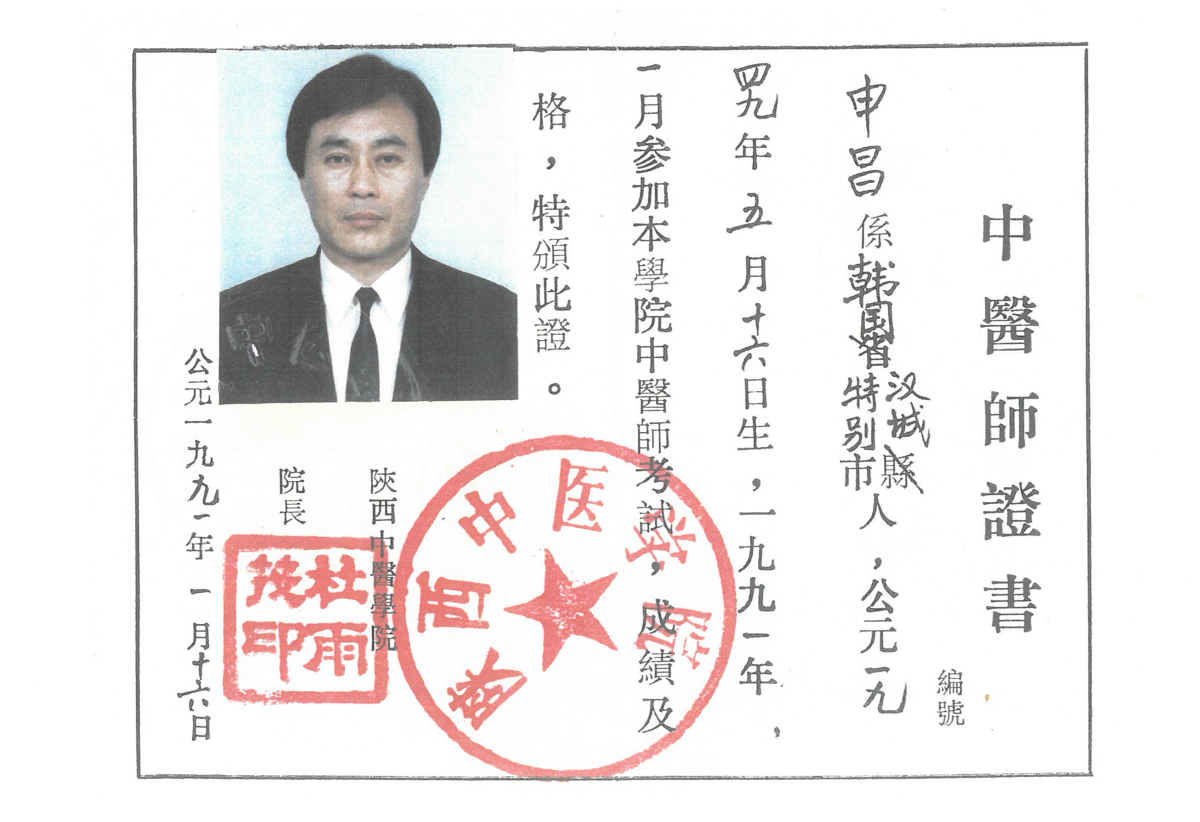 中醫師證書
編號
申昌係韩国省汉城縣特别市人，公元一九
四九年五月十六日生，一九九一年，
一月参加本學院中醫師考試，成績及
格，特頒此證。
陝西中醫學院
院長
公元一九九一年一月十六日
陕西中医学院
杜雨茂印